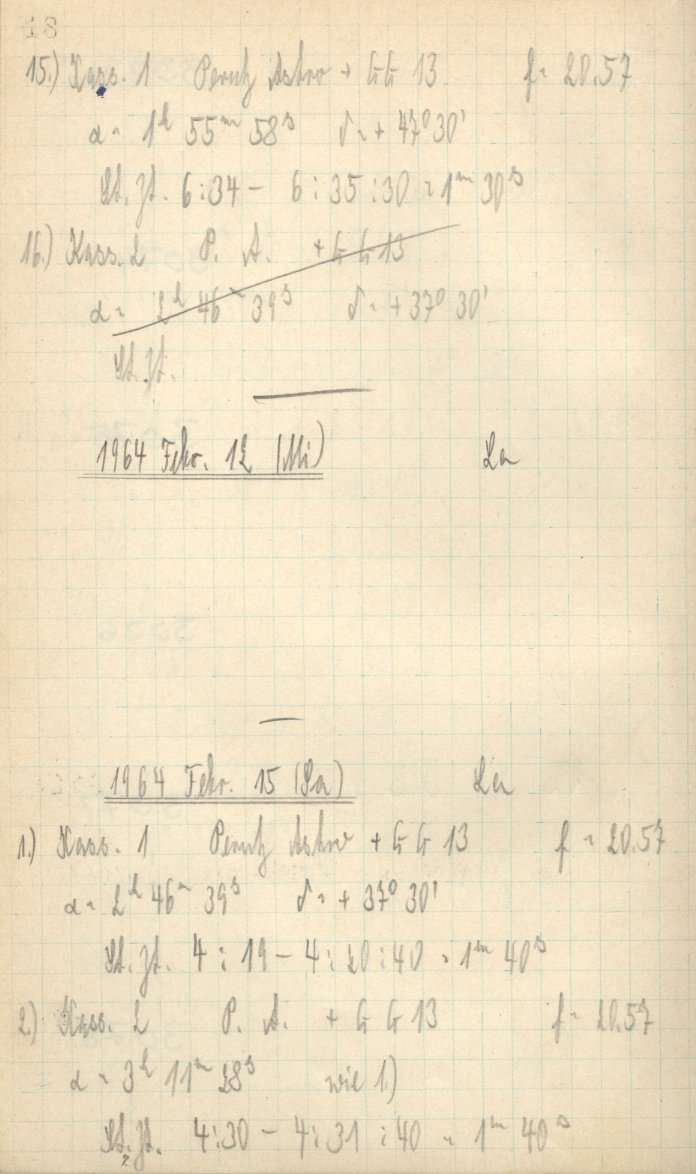 15.) Kass. 1 Perutz Astro + GG 13 f = 20.57
α = 1h 55m 58s δ = + 47° 30'
St. Zt. 6:34 - 6:35:30 = 1m 30s
16.) Kass. 2 P. A. + GG 13
α = 2h 46m 39s δ = + 37° 30'
St. Zt.
1964 Febr. 12 (Mi) La
1964 Febr. 15 (Sa) La
1.) Kass. 1 Perutz Astro + GG 13 f = 20.57
α = 2h 46m 39s δ = + 37° 30'
St. Zt. 4:19 - 4:20:40 = 1m 40s
2.) Kass. 2 P. A. + GG 13 f = 20.57
α = 3h 11m 28s wie 1.)
St. Zt. 4:30 - 4:31:40 = 1m 40s